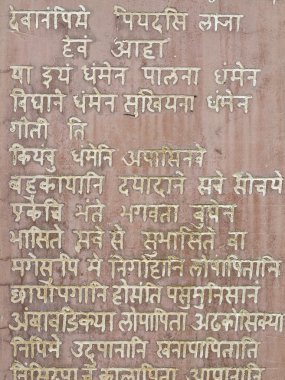 देवानंपिये पियदसि लाजा
हेवं आहा
या इयं धंमेन पालना धंमेन
विधाने धंमेन सुखियना धंमेन
गोती ति
कियंचु धंमेति अपासिनवे
बहुकयानि दयादाने सचे सोचये
एकेचि भंते भगवता बुधेन
भासिते सवे से सुभासिते वा
मगेसु पि मे निगोहानि लोपापितानि
छायोपगानि होसंति पसुमुनिसानं
अंबावडिक्या लोपापिता अढकोसिक्या
निपिमे उदुपानानि खनापापितानि